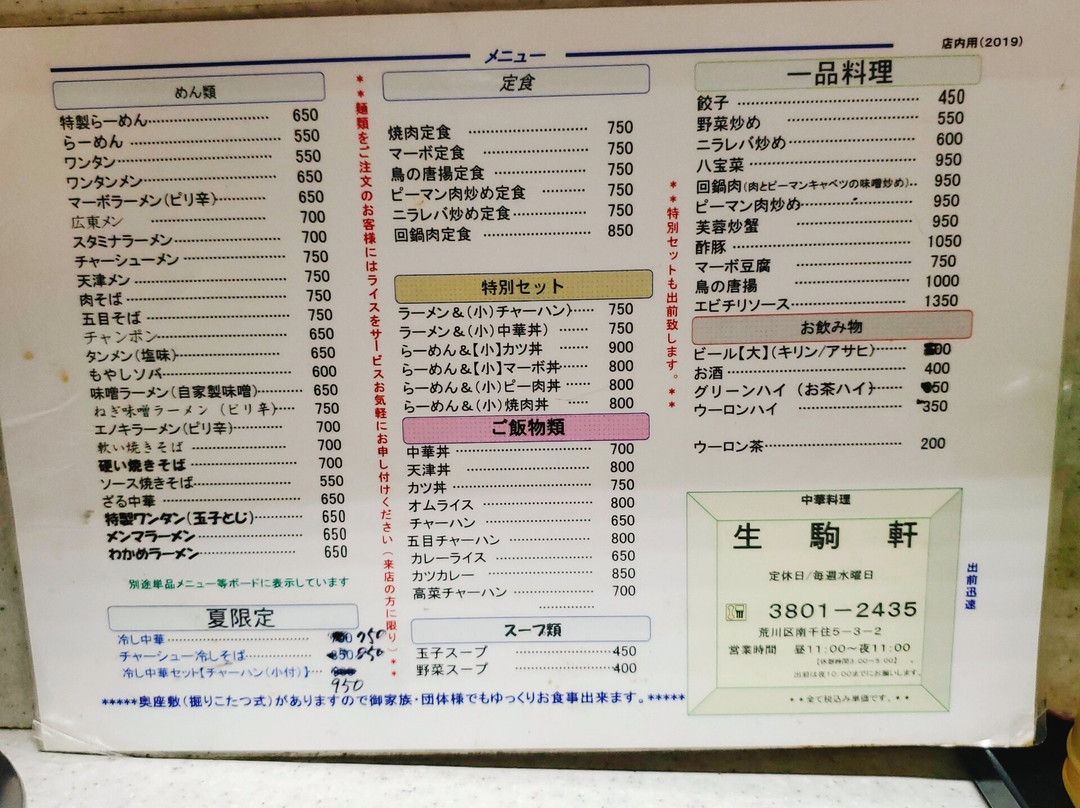 店内用(2019)
メニュー
めん類
特製らーめん 650
らーめん 550
ワンタン 550
ワンタンメン 650
マーボラーメン(ピリ辛) 650
広東メン 700
スタミナラーメン 700
チャーシューメン 750
天津メン 750
肉そば 750
五目そば 750
チャンポン 650
タンメン(塩味) 650
もやしソバ 600
味噌ラーメン(自家製味噌) 650
ねぎ味噌ラーメン(ピリ辛) 750
エノキラーメン(ピリ辛) 700
軟い焼きそば 700
硬い焼きそば 700
ソース焼きそば 550
ざる中華 650
特製ワンタン(玉子とじ) 650
メンマラーメン 650
わかめラーメン 650
別途単品メニュー等ボードに表示しています
夏限定
冷し中華 750
チャーシュー冷しそば 850
冷し中華セット【チャーハン(小付)】
950
**麺類をご注文のお客様にはライスをサービスお気軽にお申し付けください(来店の方に限り)**
定食
焼肉定食 750
マーボ定食 750
鳥の唐揚定食 750
ピーマン肉炒め定食 750
ニラレバ炒め定食 750
回鍋肉定食 850
特別セット
ラーメン&(小)チャーハン) 750
ラーメン&(小)中華丼) 750
らーめん&【小】カツ丼 900
らーめん&【小】マーボ丼 800
らーめん&(小)ピー肉丼 800
らーめん&(小)焼肉丼 800
ご飯物類
中華丼 700
天津丼 800
カツ丼 750
オムライス 800
チャーハン 650
五目チャーハン 800
カレーライス 650
カツカレー 850
高菜チャーハン 700
スープ類
玉子スープ 450
野菜スープ 400
**特別セットも出前致します。**
一品料理
餃子 450
野菜炒め 550
ニラレバ炒め 600
八宝菜 950
回鍋肉(肉とピーマンキャベツの味噌炒め) 950
ピーマン肉炒め 950
芙蓉炒蟹 950
酢豚 1050
マーボ豆腐 750
鳥の唐揚 1000
エビチリソース 1350
お飲み物
ビール【大】(キリン/アサヒ)
お酒 400
グリーンハイ(お茶ハイ)
ウーロンハイ 350
ウーロン茶 200
中華料理
生駒軒
定休日/毎週水曜日
3801-2435
荒川区南千住5-3-2
営業時間 昼11:00~夜11:00
出前は夜10:00までにお願いします。
**全て税込み単価です。**
出前迅速
*****奥座敷(掘りこたつ式)がありますので御家族・団体様でもゆっくりお食事出来ます。*****